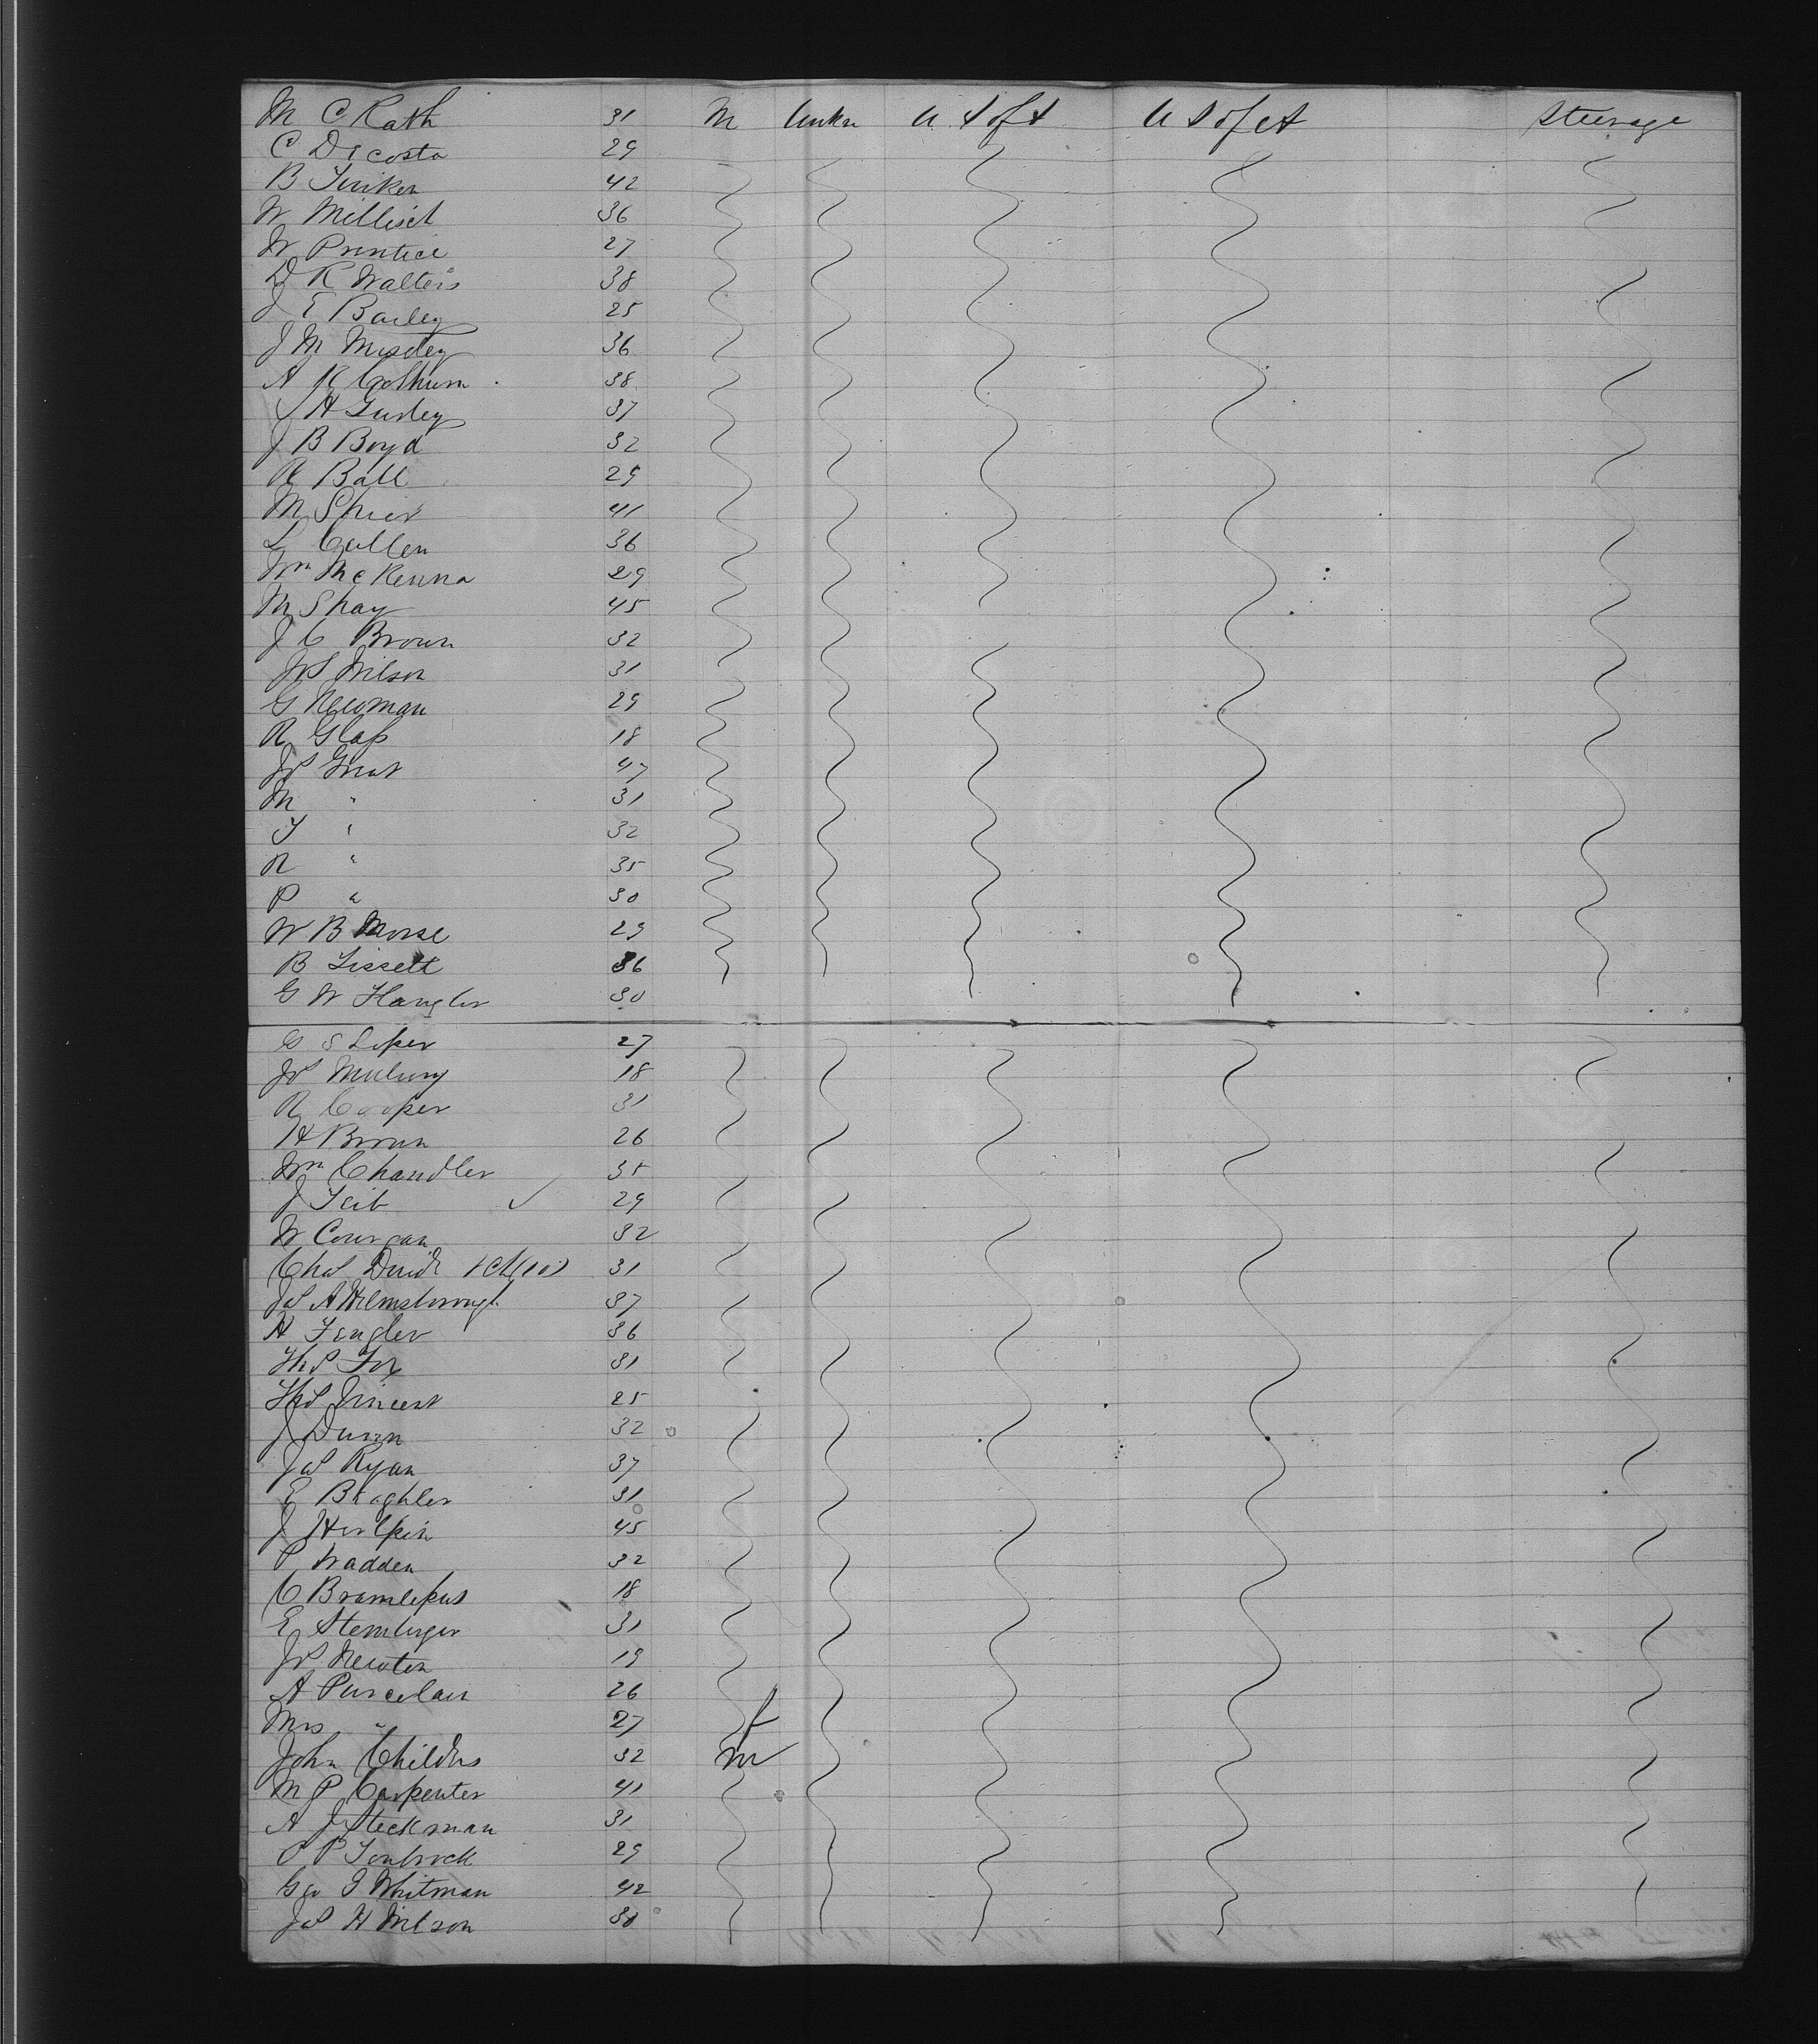 M C Rath 31 M Unkn U S of A U S of A Steerage
C Decosta 29
B Tinker 42
W Millisch 36
W Prentice 27
D R Walters 38
J E Bailey 25
J M Mosdey 36
A R Colburn 38
J H Gurley 37
J B Boyd 32
R Ball 29
M Shier 41
L Cullen 36
Wm McKenna 29
M Shay 45
J C Brown 32
Jos Wilson 31
G Newman 29
R Glass 18
Jos Great 47
M " 31
T " 32
R " 35
P " 30
W B Morse 29
B Lissett 36
G W Hangler 30
G S Loper 27
Jos 18
R Cooper 31
H Brown 26
Wm Chandler 35
J Teib ✓ 29
W 32
Chas David 31
Jas A 37
H Fengler 36
Thos Fox 31
Thos Vincent 25
J Dunn 32
Jas Ryan 37
E 31
J Halpin 45
P Wadden 32
C 18
E Sternberger 31
Jos Newton 19
A Purcelau 26
Mrs " 27 f
John Childers 32 m
M P Carpenter 41
A J Steckman 31
P P Tenbrock 29
Geo J Whitman 42
Jas H Wilson 30